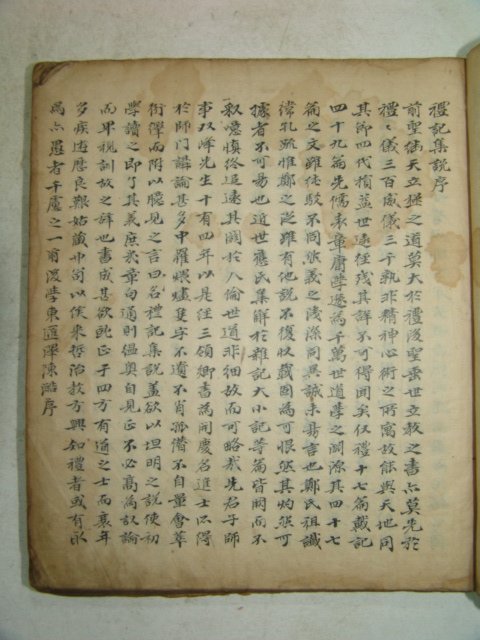 禮記集說序
前聖繼天立極之道莫大於禮後聖垂世立教之書亦莫先於
禮禮儀三百威儀三千孰非精神心術之所寓故能與天地同
其節四代損益世遠經殘其詳不可得聞矣仪禮十七篇戴記
四十九篇先儒表章庸學遂爲千萬世道學之淵源其四十七
篇之文雖純駁不同然義之淺深同異誠未易言也鄭氏祖讖
緯孔疏惟鄭之從雖有他說不復收載固爲可恨然其灼然可
據者不可易也近世應氏集解於雜記大小記等篇皆闕而不
釋噫慎終追遠其關於人倫世道非細故而可略哉先君子師
事双峰先生十有四年以是經三領鄉書爲開慶名進士所得
於師門講論甚多中罹煨燼隻字不遺不肖孤僣不自量會萃
衍繹而附以臆見之言曰名禮記集說盖欲以坦明之說使初
學讀之即了其義庶㡬章句通則縕奧自見正不必高爲議論
而卑視訓故之辞也書成甚欲就正于四方有道之士而衰年
多疾遊歷良艱姑藏巾笥以俟來哲治敎方興知禮者或有取
焉亦愚者千慮之一爾後學東匯澤陳澔序